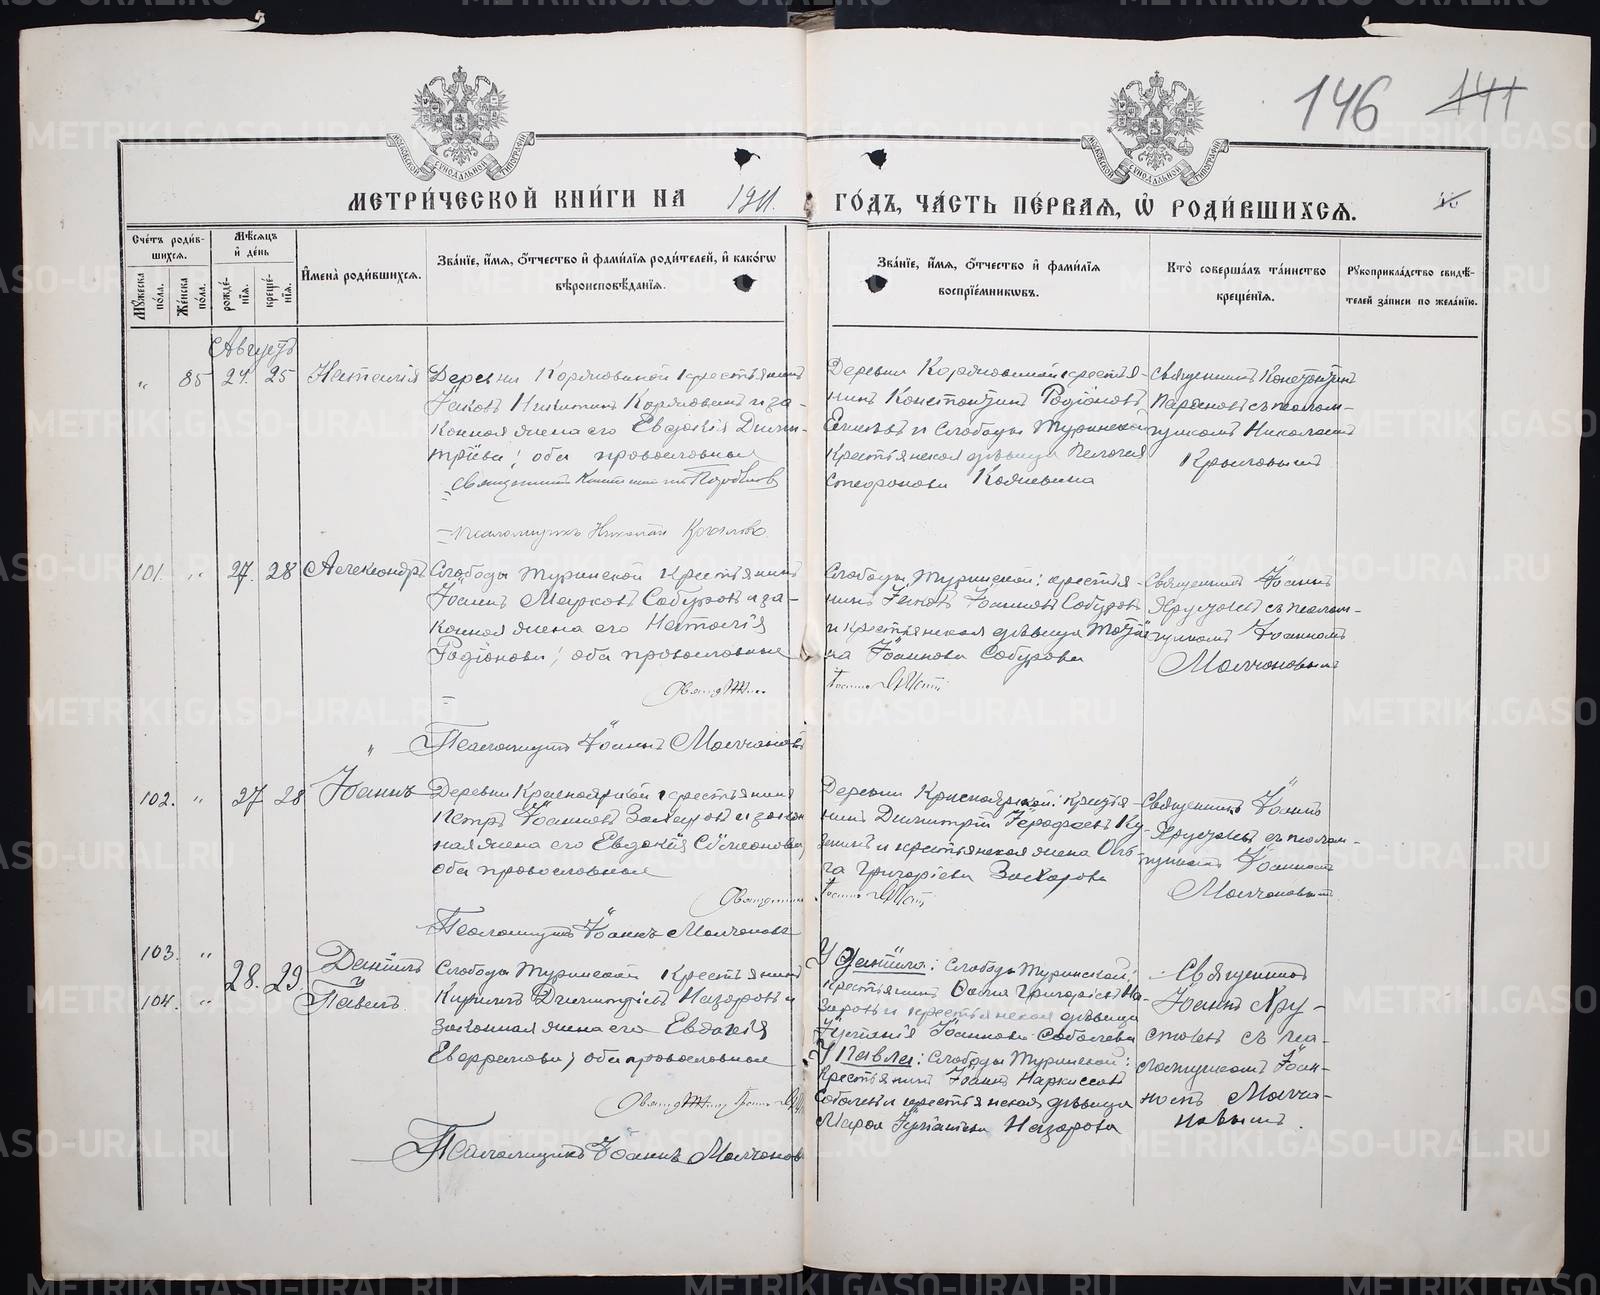 146 141
МЕТРИ́ЧЕСКОЙ КНИ́ГИ НА 1911 ГО́ДЪ, ЧА́СТЬ ПЕ́РВАЯ, Ѡ РОДИ́ВШИХСЯ.
Сче́тъ роди́в-
шихся.
Мѣ́сяцъ
и де́нь
Мꙋ́жеска по́ла.
Же́нска по́ла.
рожде́-
нїѧ.
креще́-
нїѧ.
И҆мена̀ роди́вшихся.
Зва́нїе, и҆́мѧ, ѻ҆́тчество и҆ фами́лїѧ роди́телей, и҆ како́гѡ
вѣроисповѣ́данїѧ.
Зва́нїе, и҆́мѧ, ѻ҆́тчество и҆ фами́лїѧ
воспрїе́мникѡвъ.
Кто̀ соверша́лъ та́инство
креще́нїѧ.
Рꙋкоприкла́дство свидѣ́-
телей за́писи по жела́нїю.
Августъ
" 85 24. 25 Наталія
Деревни Коряковской крестьянинъ
Іаковъ Никитинъ Коряковъ и за-
конная жена его Евдокія Дими-
тріева; оба православные
Священникъ Константинъ
Псаломщикъ Николай Крыловъ
Деревни Коряковской крестья-
нинъ Константинъ Родіоновъ
и Слободы Туринской
крестьянская дѣвица Пелагія
Стефанова
Священникъ Константинъ
съ псалом-
щикомъ Николаемъ
Крыловымъ
101. " 27. 28 Александръ
Слободы Туринской крестьянинъ
Іоаннъ Марковъ Собуровъ и за-
конная жена его Наталія
Родіонова; оба православные
Псаломщикъ Іоаннъ Молчановъ
Слободы Туринской: крестья-
нинъ Іаковъ Іоанновъ Собуровъ
и крестьянская дѣвица Татія-
на Іоаннова Собурова
Священникъ Іоаннъ
Хрустовъ съ псалом-
щикомъ Іоанномъ
Молчановымъ
102. " 27 28 Іоаннъ
Деревни Красноярской крестьянинъ
Петръ Іоанновъ Захаровъ и закон-
ная жена его Евдокія Симеонова,
оба православные
Псаломщикъ Іоаннъ Молчановъ
Деревни Красноярской: крестья-
нинъ Димитрій Іерофеевъ Ку-
и крестьянская жена Оль-
га Григоріева Захарова
Священникъ Іоаннъ
Хрустовъ съ псалом-
щикомъ Іоанномъ
Молчановымъ
103. " Даніилъ
28. 29.
104. " Павелъ
Слободы Туринской крестьянинъ
Кириллъ Димитріевъ Назаровъ и
законная жена его Евдокія
Евфремова; оба православные
Псаломщикъ Іоаннъ Молчановъ
У Даніила: Слободы Туринской:
крестьянинъ Григоріевъ На-
заровъ и крестьянская дѣвица
Іоаннова Соболева
У Павла: Слободы Туринской:
крестьянинъ Іоаннъ Наркиссовъ
Соболевъ и крестьянская дѣвица
Марія Игнатіева Назарова
Священникъ
Іоаннъ Хру-
стовъ съ пса-
ломщикомъ Іоан-
номъ Молча-
новымъ.
METRIKI.GASO-URAL.RU